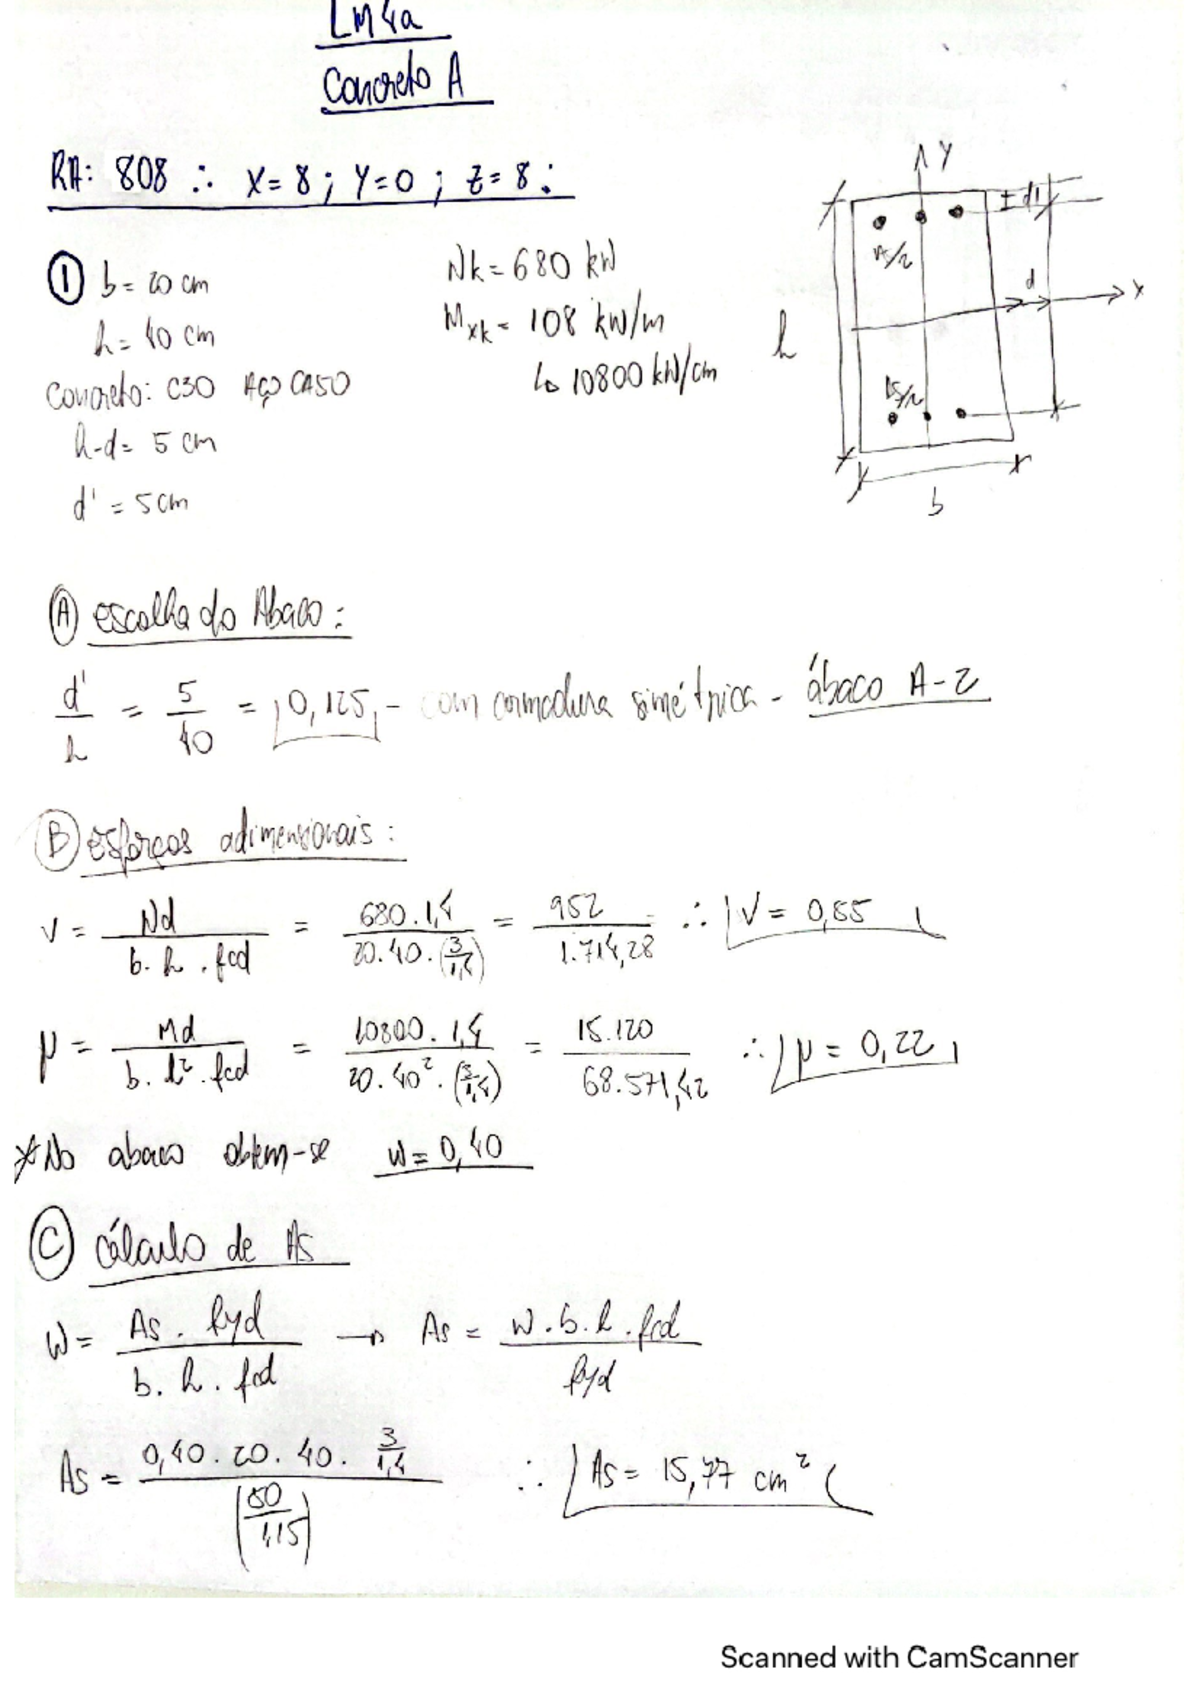 LM4a
Concreto A
RA: 808 ∴ X=8 ; Y=0 ; Z=8 :
① b= 20 cm
h= 40 cm
Concreto: C30 AÇO CA50
h-d= 5 cm
d' = 5cm
Nk= 680 kN
Mxk= 108 kN/m
↳ 10800 kN/cm
Y
d'
As/2
d
X
h
As/2
b
Ⓐ escolha do Abaco :
d'/h = 5/40 = 0,125 - com armadura simétrica - ábaco A-2
Ⓑ esforços adimensionais :
ν = Nd/(b. h . fcd) = 680.1,4/(20.40.(3/1,4)) = 952/1.714,28 ∴ V= 0,55
μ = Md/(b. h². fcd) = 10800. 1,4/(20.40².(3/1,4)) = 15.120/68.571,42 ∴ μ= 0,22
*No abaco obtem-se W= 0,40
Ⓒ cálculo de As
W= As . fyd/(b. h . fcd) → As = W.b.h.fcd/fyd
As = 0,40.20.40. 3/1,4/(50/1,15) ∴ As= 15,77 cm²
Scanned with CamScanner